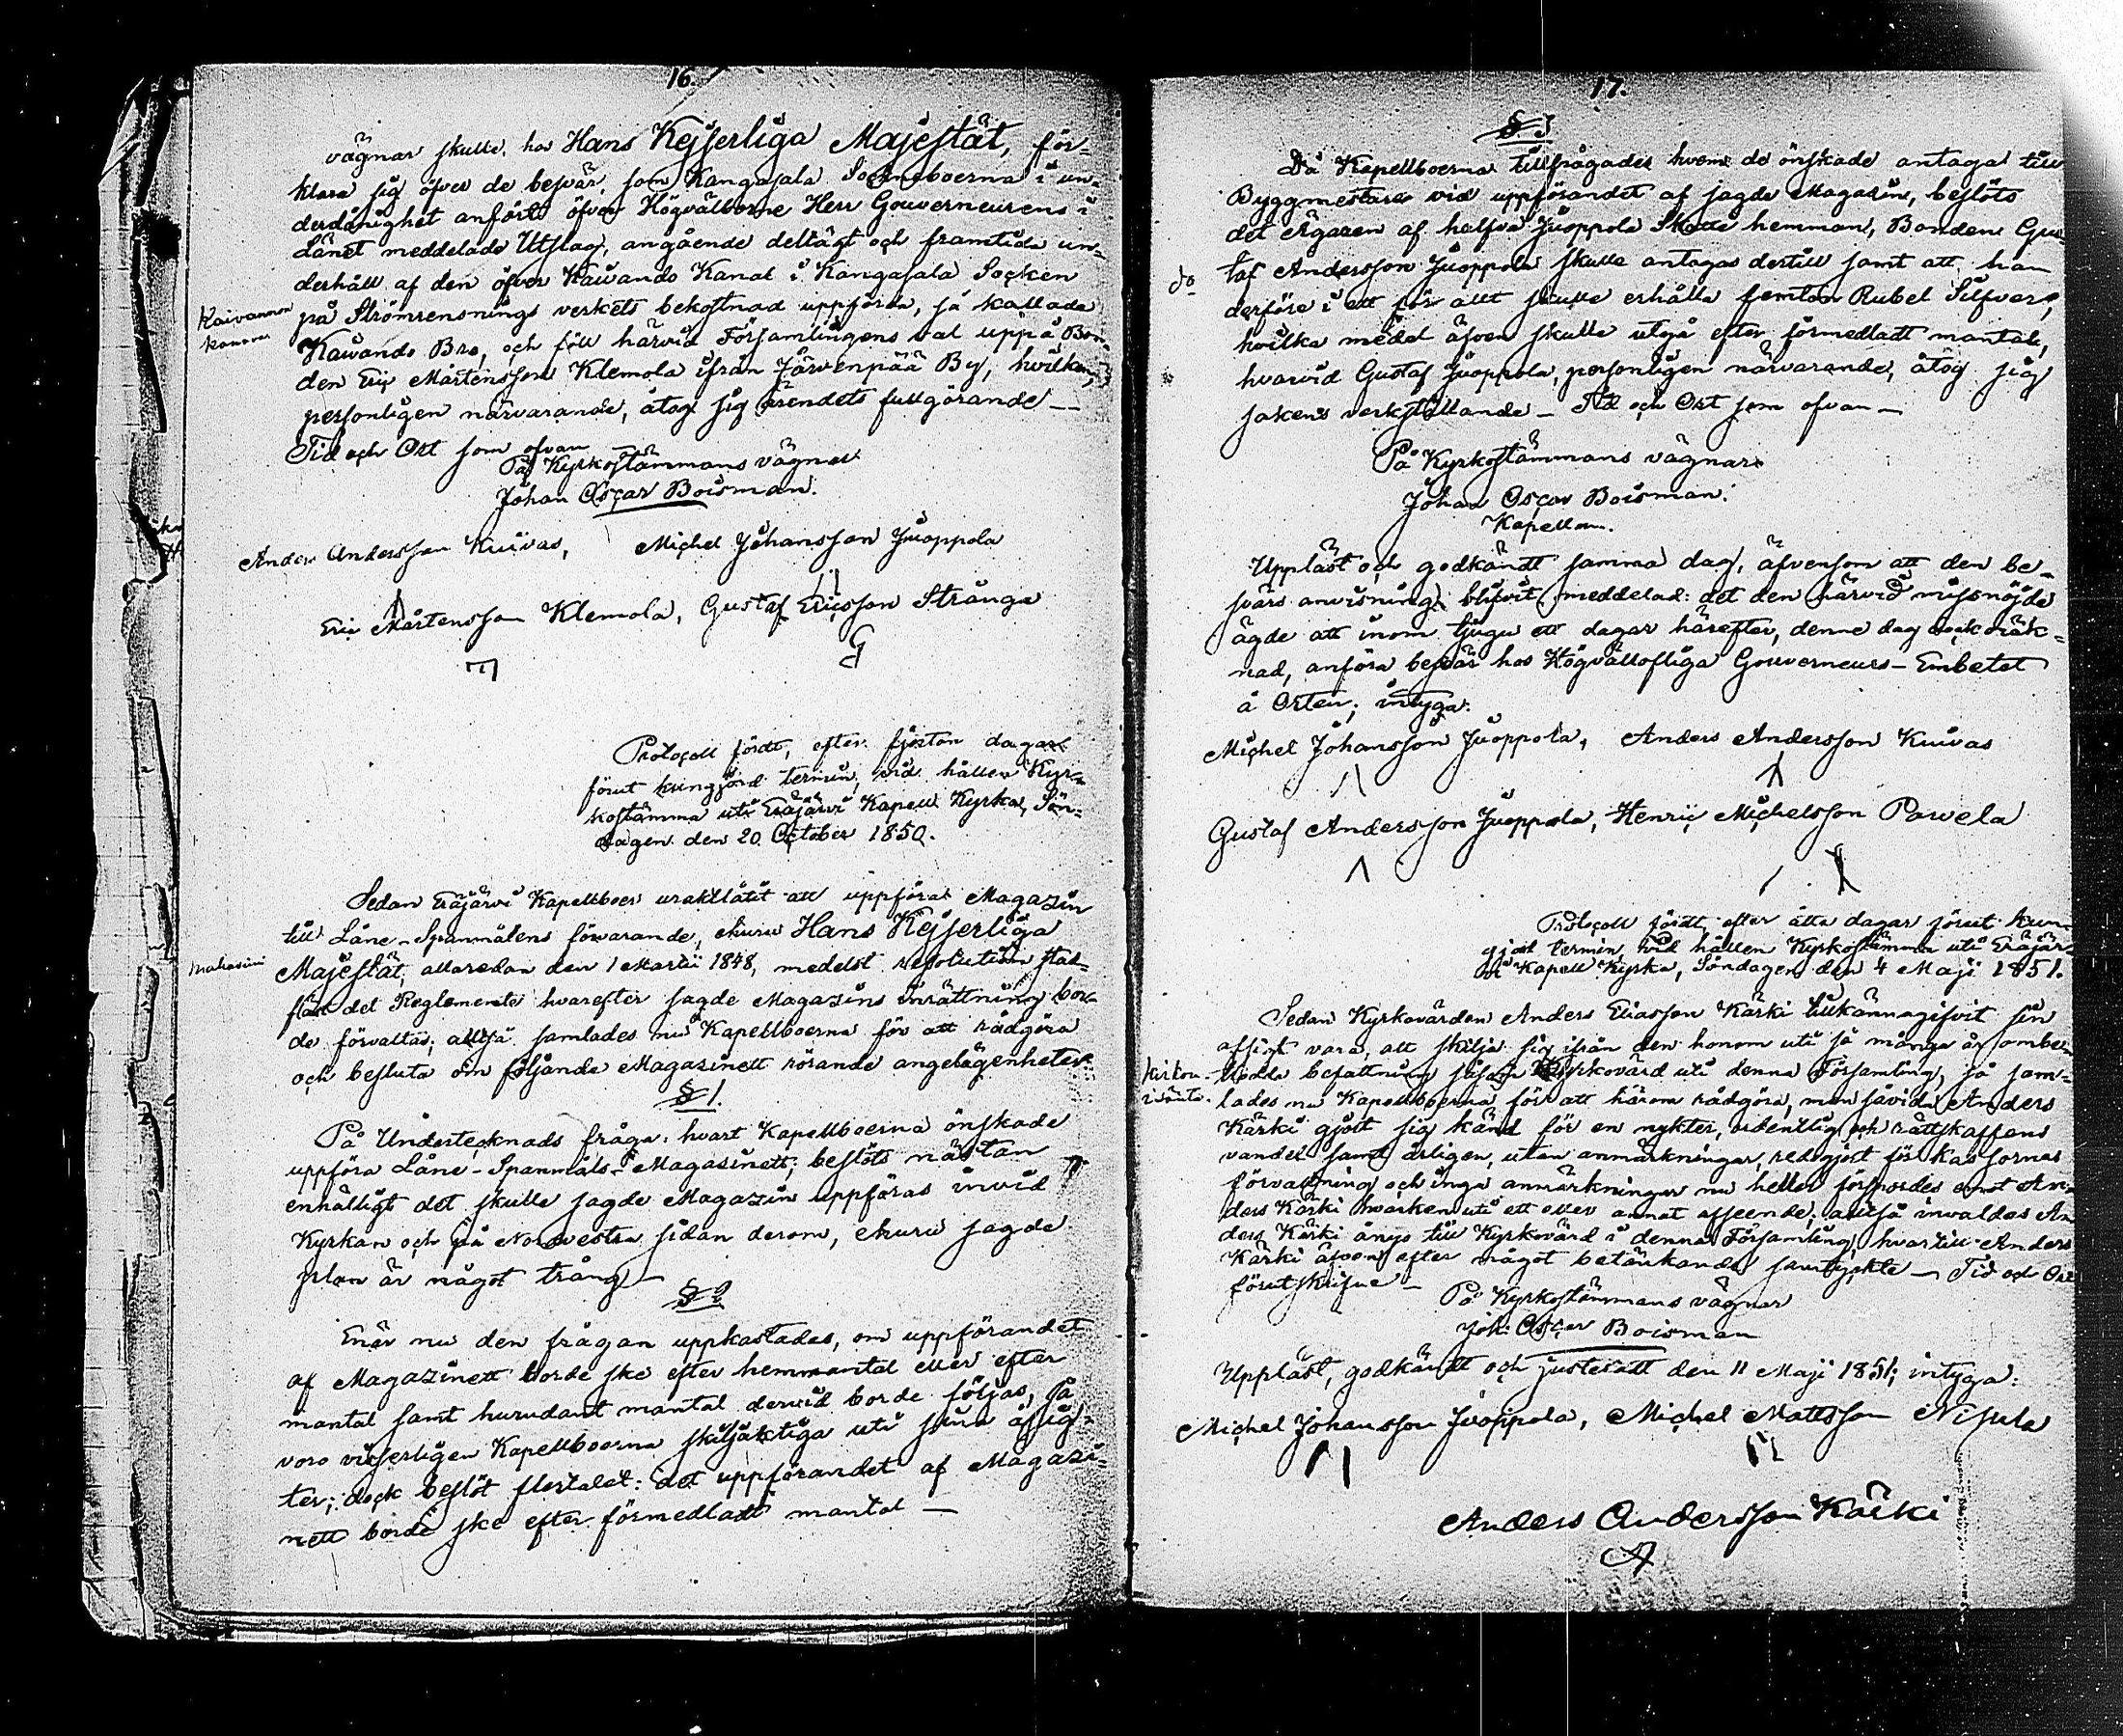 16.
vägnar skulle hos Hans Kejserliga Majestät, för-
klara sig öfver de besvär, som Kangasala Socknboerna i un-
derdånighet anfört öfver Högvälborne Herr Gouverneurens i
Länet meddelade Utslag, angående deltägt och framtida un-
derhåll af den öfver Kaivando Kanal i Kangasala Socken
Kaivannon
kanava
på Strömrensnings verkets bekostnad uppförda, så kallade
Kaivando Bro, och föll härvid Församlingens val uppå Bon-
den Eric Mårtensson Klemola ifrån Järvenpää By, hvilken,
personligen närvarande, åtog sig ärendets fullgörande —
Tid och Ort som ofvan
På Kyrkostämmans vägnar
Johan Oscar Boisman.
Anders Andersson Kuivas, Michel Johansson Juoppola
Eric Mårtensson Klemola, Gustaf Ericsson Stränga
Protocoll fördt, efter fjorton dagar
förut kungjord termin, vid hållen Kyr-
kostämma uti Eräjärvi Kapell Kyrka, Sön-
dagen den 20 October 1850.
Sedan Eräjärvi Kapellboer uraktlåtit att uppföra Magazin
till Låne-Spannmålens förvarande, ehuru Hans Kejserliga
makasini
Majestät, allaredan den 1 Martii 1848, medelst resolution stad-
fäst det Reglemente hvarefter sagde Magasins Inrättning bor-
de förvaltas; alltså samlades nu Kapellboerna för att rådgöra
och besluta om följande Magazinett rörande angelägenheter
§ 1.
På Undertecknads fråga: hvart Kapellboerna önskade
uppföra Låne-Spanmåls-Magasinett; beslöts nästan
enhälligt det skulle sagde Magazin uppföras invid
Kyrkan och på Nordvestra sidan derom, ehuru sagde
plan är något trång —
§ 2
Enär nu den frågan uppkastades, om uppförandet
af Magazinett borde ske efter hemmantal eller efter
mantal samt hurudant mantal dervid borde följas, så
voro visserligen Kapellboerna skiljaktiga uti sina åsig-
ter; dock beslöt flertalet: det uppförandet af Magazi-
nett borde ske efter förmedladt mantal —
17.
§ 3
Då Kapellboerna tillfrågades hvem de önskade antaga till
Byggmestare vid uppförandet af sagde Magazin, beslöts
det Ägaren af halfva Juoppola Skatte hemman, Bonden Gus-
do
taf Andersson Juoppola skulle antagas dertill samt att han
derföre i ett för allt skulle erhålla femton Rubel Silfver,
hvilka medel äfven skulle utgå efter förmedladt mantal,
hvarvid Gustaf Juoppola, personligen närvarande, åtog sig
sakens verkställande — Tid och Ort som ofvan —
På Kyrkostämmans vägnar
Johan Oscar Boisman.
Kapellan.
Uppläst och godkändt samma dag, äfvensom att den be-
svärs anvisning blifvit meddelad: det den härvid missnöjde
ägde att inom tjugu ett dagar härefter, denne dag oräk-
nad, anföra besvär hos Högvällofliga Gouverneurs-Embetet
å Orten; intyga:
Michel Johansson Juoppola, Anders Andersson Kuivas
Gustaf Andersson Juoppola, Henric Michelsson Pawela
Protocoll fördt, efter åtta dagar förut kun-
gjord termin, vid hållen Kyrkostämma uti Eräjär-
vi Kapell Kyrka, Söndagen den 4 Maji 1851.
Sedan Kyrkovärden Anders Eliasson Kärki tillkännagifvit sin
afsigt vara, att skilja sig ifrån den honom uti så många år ombe-
kirkon-
isäntä.
trodda befattning såsom Kyrkovärd uti denna Församling, så sam-
lades nu Kapellboerna för att härom rådgöra, men såvida Anders
Kärki gjort sig känd för en nykter, ordentlig och rättskaffens
vandel samt årligen, utan anmärkningar, redogjort för kassornas
förvaltning och inga anmärkningar nu heller förspordes emot An-
ders Kärki hvarken uti ett eller annat afseende; alltså invaldes An-
ders Kärki ånyo till Kyrkovärd i denna Församling, hvartill Anders
Kärki äfven efter något betänkande samtyckte — Tid och Ort
förutskrifne —
På Kyrkostämmans vägnar
Joh: Oscar Boisman
Uppläst, godkändt och justeradt den 11 Maji 1851; intyga:
Michel Johansson Juoppola, Michel Mattsson Nisula
Anders Andersson Kärki